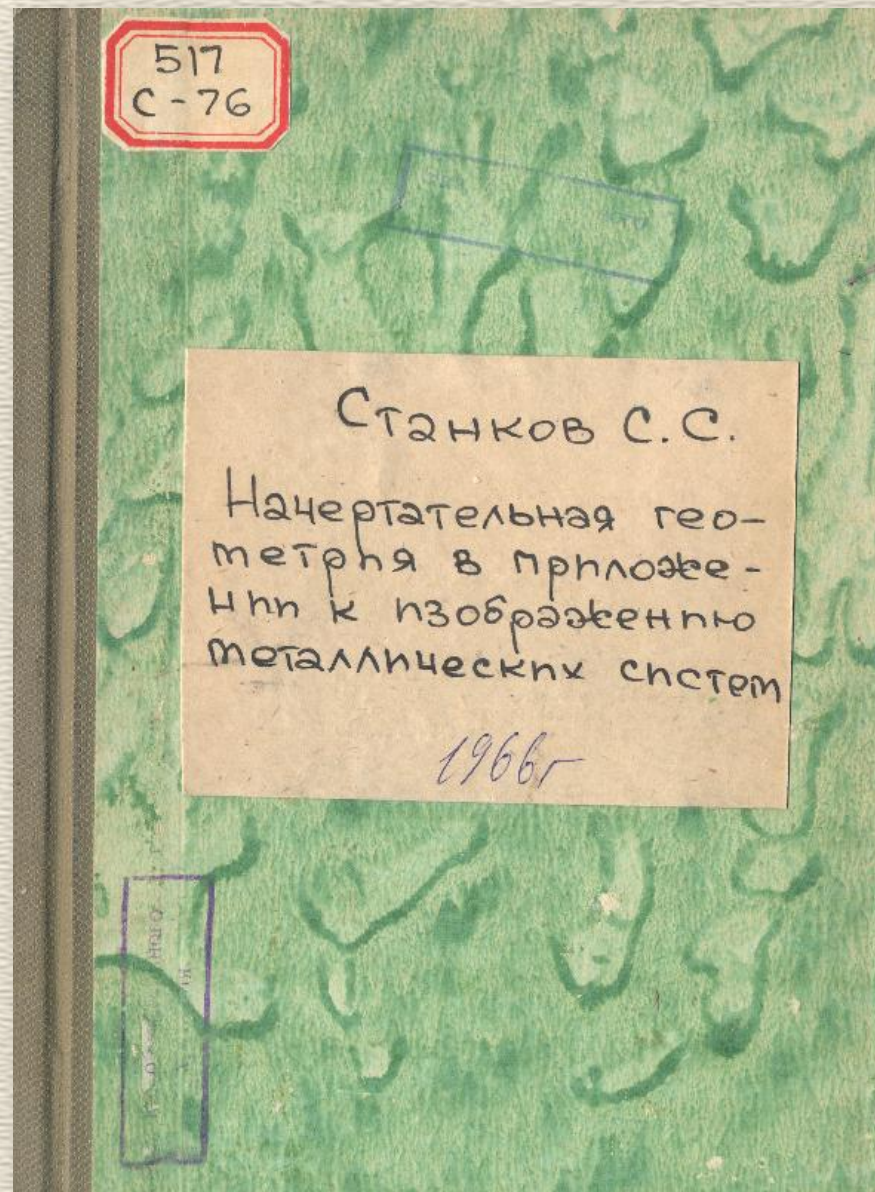 517
С-76
Станков С.С.
Начертательная гео-
метрия в приложе-
нии к изображению
металлических систем
1966г